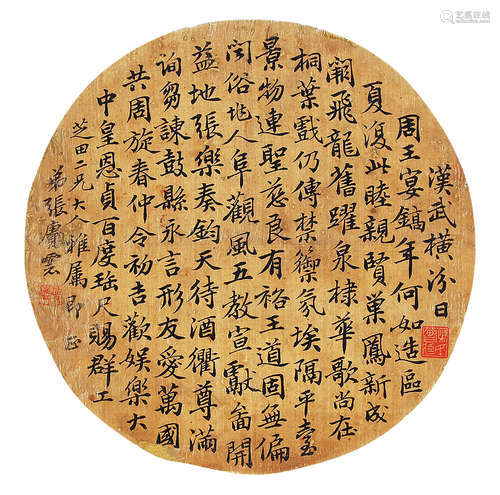 漢武橫汾日
周王宴鎬年何如造區
夏復此睦親賢巢鳳新成
闕飛龍舊躍泉棣華歌尚在
桐葉戲仍傳禁籞氛埃隔平臺
景物連聖慈良有裕王道固無偏
問俗兆人阜觀風五教宣獻圖開
益地張樂奏鈞天待酒衢尊滿
詢芻諫鼓縣永言形友愛萬國
共周旋春仲令初吉歡娛樂大
中皇恩貞百度瑤尺賜群工
芝田二兄大人雅屬即正
弟張賡